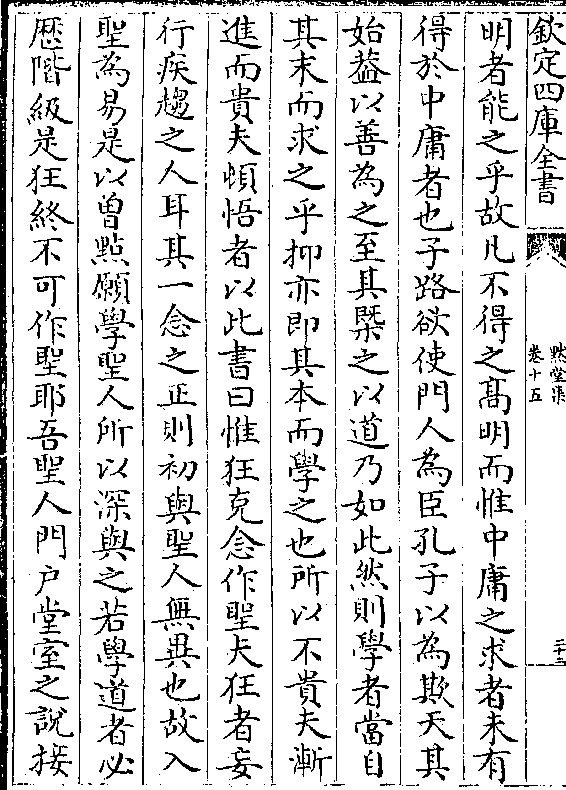 欽定四庫全書
黙堂集
卷十五
二十三
明者能之乎故凡不得之髙明而惟中庸之求者未有
得於中庸者也子路欲使門人為臣孔子以為欺天其
始葢以善為之至其槩之以道乃如此然則學者當自
其末而求之乎抑亦即其本而學之也所以不貴夫漸
進而貴夫頓悟者以此書曰惟狂克念作聖夫狂者妄
行疾趨之人耳其一念之正則初與聖人無異也故入
聖為易是以曽㸃願學聖人所以深與之若學道者必
歴階級是狂終不可作聖耶吾聖人門户堂室之說接